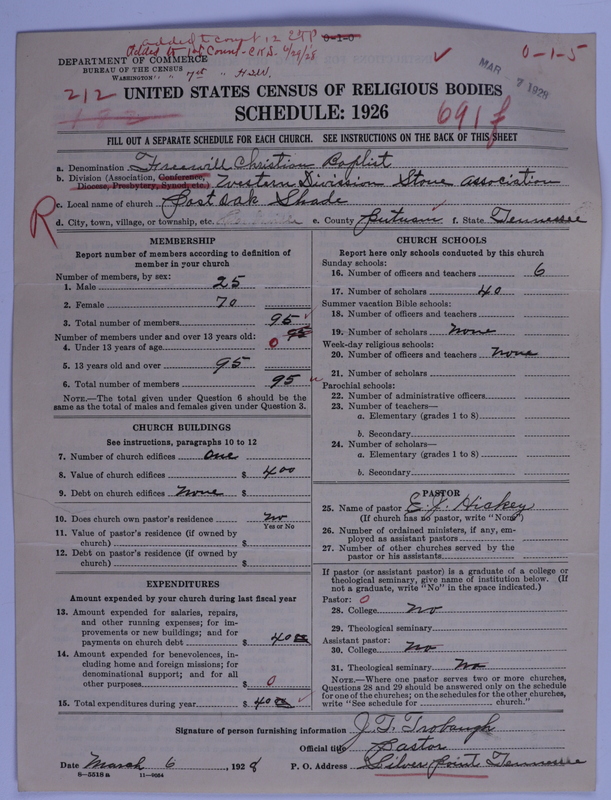 added to count 12 ESP 0-1-0
Added to 1st Count - C.K.S. 6/29/28
DEPARTMENT OF COMMERCE
BUREAU OF THE CENSUS
WASHINGTON
0-1-5
MAR 7 1928
212
UNITED STATES CENSUS OF RELIGIOUS BODIES
182
SCHEDULE: 1926
691f
FILL OUT A SEPARATE SCHEDULE FOR EACH CHURCH. SEE INSTRUCTIONS ON THE BACK OF THIS SHEET
a. Denomination Freewill Christian Baptist
b. Division (Association, Conference, Diocese, Presbytery, Synod, etc.) Western Division Stone Association
c. Local name of church Post Oak Shade
R
d. City, town, village, or township, etc. e. County Putnam f. State Tennessee
MEMBERSHIP
Report number of members according to definition of member in your church
Number of members, by sex:
1. Male 25
2. Female 70
3. Total number of members 95
Number of members under and over 13 years old: 95
4. Under 13 years of age 0
5. 13 years old and over 95
6. Total number of members 95
NOTE.—The total given under Question 6 should be the same as the total of males and females given under Question 3.
CHURCH BUILDINGS
See instructions, paragraphs 10 to 12
7. Number of church edifices One
8. Value of church edifices $ 400
9. Debt on church edifices None $
10. Does church own pastor's residence No
Yes or No
11. Value of pastor's residence (if owned by church) $
12. Debt on pastor's residence (if owned by church) $
EXPENDITURES
Amount expended by your church during last fiscal year
13. Amount expended for salaries, repairs, and other running expenses; for improvements or new buildings; and for payments on church debt $ 40 00
14. Amount expended for benevolences, including home and foreign missions; for denominational support; and for all other purposes $ 0
15. Total expenditures during year $ 40 00
CHURCH SCHOOLS
Report here only schools conducted by this church
Sunday schools:
16. Number of officers and teachers 6
17. Number of scholars 40
Summer vacation Bible schools:
18. Number of officers and teachers
19. Number of scholars None
Week-day religious schools:
20. Number of officers and teachers None
21. Number of scholars
Parochial schools:
22. Number of administrative officers
23. Number of teachers—
a. Elementary (grades 1 to 8)
b. Secondary
24. Number of scholars—
a. Elementary (grades 1 to 8)
b. Secondary
PASTOR
25. Name of pastor E. J. Hickey
(If church has no pastor, write "None")
26. Number of ordained ministers, if any, employed as assistant pastors
27. Number of other churches served by the pastor or his assistants
If pastor (or assistant pastor) is a graduate of a college or theological seminary, give name of institution below. (If not a graduate, write "No" in the space indicated.)
Pastor: 0
28. College No
29. Theological seminary
Assistant pastor:
30. College No
31. Theological seminary No
NOTE.—Where one pastor serves two or more churches, Questions 28 and 29 should be answered only on the schedule for one of the churches; on the schedules for the other churches, write "See schedule for church."
Signature of person furnishing information J. T. Trobaugh
Official title Pastor
Date March 6, 1928 P. O. Address Silver Point Tennessee
8-5518a 11-9034